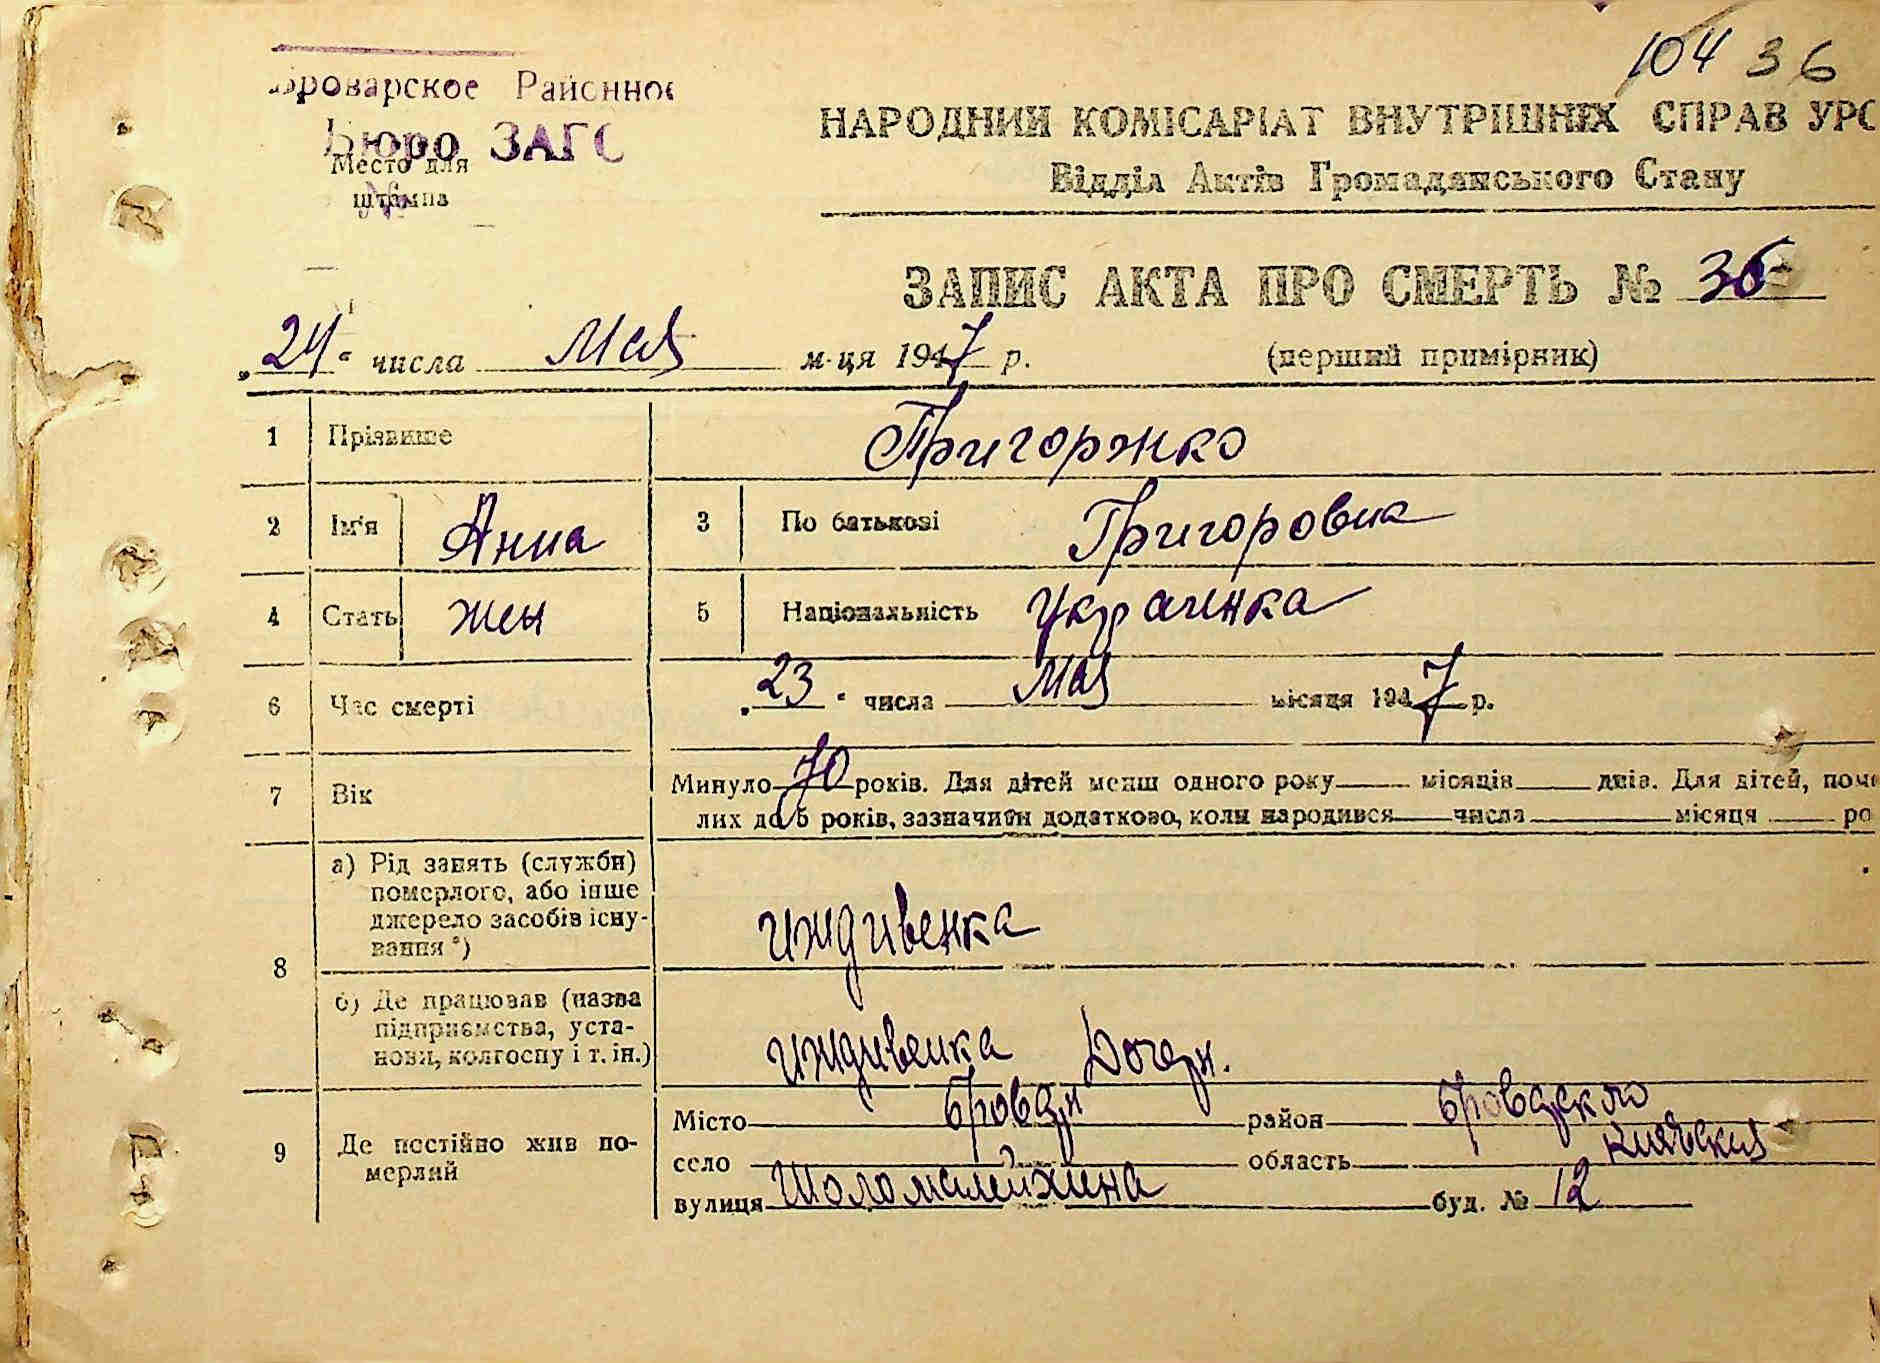 104 36
Броварское Районное
Бюро ЗАГС
Место для
штампа
НАРОДНИЙ КОМІСАРІАТ ВНУТРІШНІХ СПРАВ УРС
Відділ Актів Громадянського Стану
ЗАПИС АКТА ПРО СМЕРТЬ № 36
„24“ числа Мая м-ця 1947 р. (перший примірник)
1 Прізвище Григоренко
2 Ім'я Анна 3 По батькові Григоровна
4 Стать жен 5 Національність Украинка
6 Час смерті „23“ числа Мая місяця 1947 р.
7 Вік Минуло 70 років. Для дітей менш одного року місяців днів. Для дітей, поме
лих до 5 років, зазначити додатково, коли народився числа місяця ро
8 а) Рід занять (служби)
померлого, або інше
джерело засобів існу-
вання*)
иждивенка
б) Де працював (назва
підприємства, уста-
нови, колгоспу і т. ін.)
иждивенка Дочери.
9 Де постійно жив по-
мерлий
Місто Бровары район Броварского
село область Киевская
вулиця буд. № 12